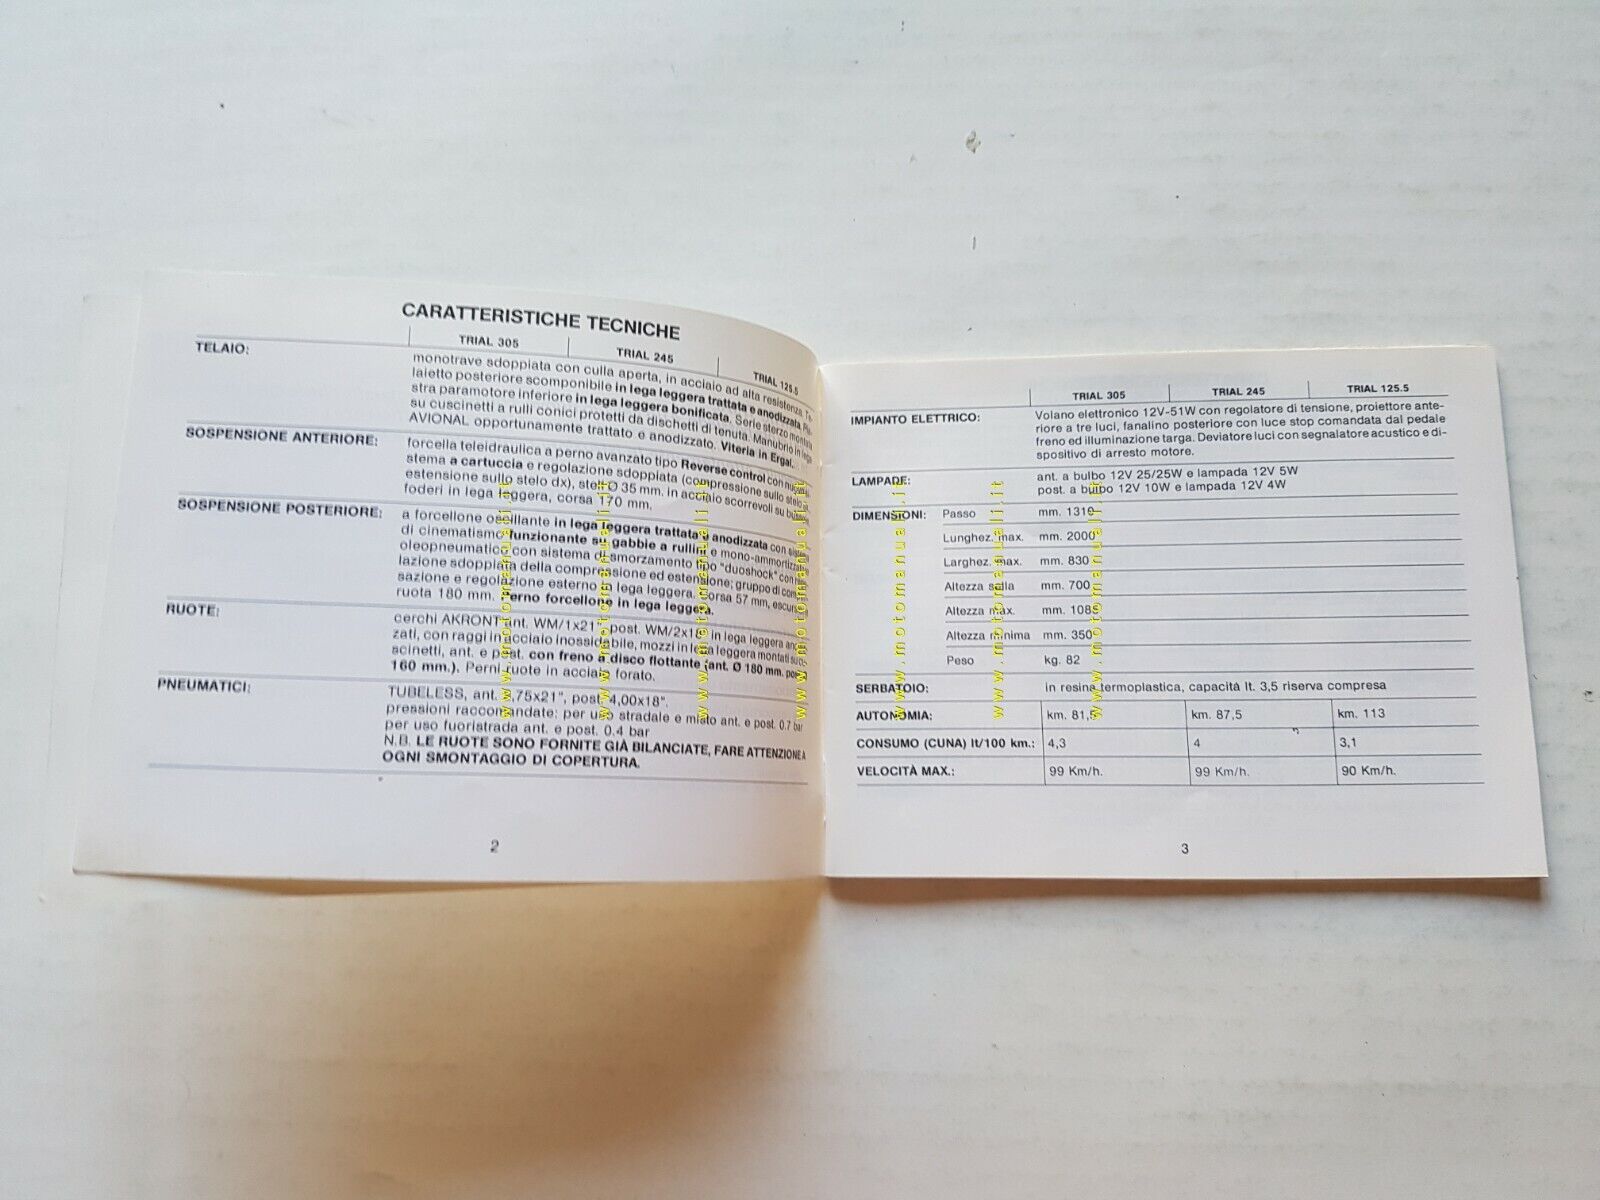 CARATTERISTICHE TECNICHE
TRIAL 305 TRIAL 245 TRIAL 125.5
TELAIO: monotrave sdoppiata con culla aperta, in acciaio ad alta resistenza. Te-
laietto posteriore scomponibile in lega leggera trattata e anodizzata. Pia-
stra paramotore inferiore in lega leggera bonificata. Serie sterzo montata
su cuscinetti a rulli conici protetti da dischetti di tenuta. Manubrio in lega
AVIONAL opportunamente trattato e anodizzato. Viteria in Ergal.
SOSPENSIONE ANTERIORE: forcella teleidraulica a perno avanzato tipo Reverse control con
stema a cartuccia e regolazione sdoppiata (compressione sullo stelo
estensione sullo stelo dx), steli Ø 35 mm. in acciaio scorrevoli su
foderi in lega leggera, corsa 170 mm.
SOSPENSIONE POSTERIORE: a forcellone oscillante in lega leggera trattata e anodizzata con
di cinematismo funzionante su gabbie a rullini e mono-ammortizzatore
oleopneumatico con sistema di smorzamento tipo "duoshock" con
lazione sdoppiata della compressione ed estensione; gruppo di
sazione e regolazione esterno in lega leggera. Corsa 57 mm, escurs.
ruota 180 mm. Perno forcellone in lega leggera.
RUOTE: cerchi AKRONT ant. WM/1x21" post. WM/2x18" in lega leggera anodiz-
zati, con raggi in acciaio inossidabile, mozzi in lega leggera montati su cu-
scinetti, ant. e post. con freno a disco flottante (ant. Ø 180 mm. post.
160 mm.). Perni ruote in acciaio forato.
PNEUMATICI: TUBELESS, ant. 2,75x21", post. 4,00x18".
pressioni raccomandate: per uso stradale e misto ant. e post. 0.7 bar
per uso fuoristrada ant. e post. 0.4 bar
N.B. LE RUOTE SONO FORNITE GIÀ BILANCIATE, FARE ATTENZIONE A
OGNI SMONTAGGIO DI COPERTURA.
2
TRIAL 305 TRIAL 245 TRIAL 125.5
IMPIANTO ELETTRICO: Volano elettronico 12V-51W con regolatore di tensione, proiettore ante-
riore a tre luci, fanalino posteriore con luce stop comandata dal pedale
freno ed illuminazione targa. Deviatore luci con segnalatore acustico e di-
spositivo di arresto motore.
LAMPADE: ant. a bulbo 12V 25/25W e lampada 12V 5W
post. a bulbo 12V 10W e lampada 12V 4W
DIMENSIONI: Passo mm. 1310
Lunghez. max. mm. 2000
Larghez. max. mm. 830
Altezza sella mm. 700
Altezza max. mm. 1085
Altezza minima mm. 350
Peso kg. 82
SERBATOIO: in resina termoplastica, capacità lt. 3,5 riserva compresa
AUTONOMIA: km. 81,5 km. 87,5 km. 113
CONSUMO (CUNA) lt/100 km.: 4,3 4 3,1
VELOCITÀ MAX.: 99 Km/h. 99 Km/h. 90 Km/h.
3
www.motomanuali.it
www.motomanuali.it
www.motomanuali.it
www.motomanuali.it
www.motomanuali.it
www.motomanuali.it
www.motomanuali.it